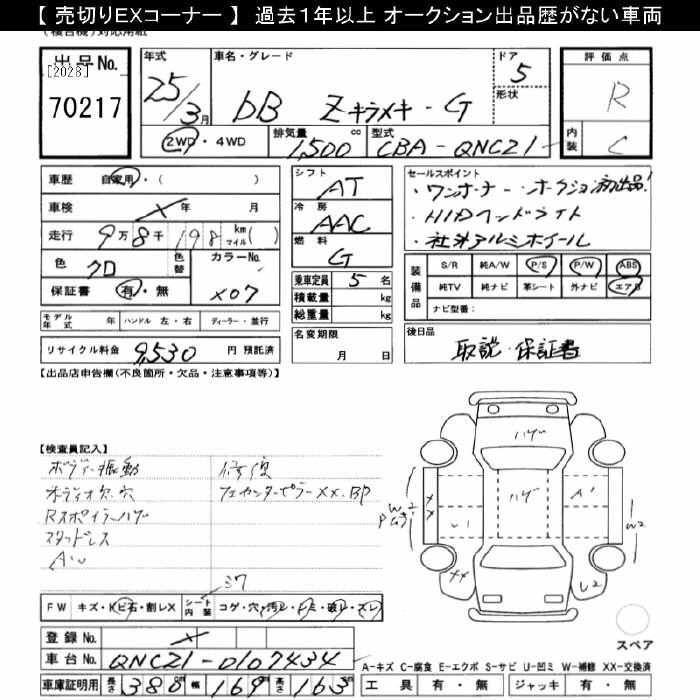 【 売切りEXコーナー 】 過去1年以上 オークション出品歴がない車両
出品No.
[2028]
70217
年式
25/3月
車名・グレード
bB Zキラメキ-G
ドア
5
形状
評価点
R
内装
C
2WD・4WD
排気量
1,500 cc
型式
CBA-QNCZ1
車歴 自家用・( )
車検 年 月
走行 9万8千198 km マイル( )
色 クロ
色替
カラーNo.
X07
保証書 有・無
シフト
AT
冷房
AAC
燃料
G
乗車定員 5 名
積載量 kg
総重量 kg
名変期限
月 日
セールスポイント
・ワンオーナー・オークション初出品!
・HIDヘッドライト
・社外アルミホイール
装備品
S/R 純A/W P/S P/W ABS
純TV 純ナビ 革シート 外ナビ エアB
ナビ型番:
後日品
取説・保証書
モデル年式 年 ハンドル 左・右 ディーラー・並行
リサイクル料金 9,530 円 預託済
【出品店申告欄(不良箇所・欠品・注意事項等)】
【検査員記入】
ボデー振動
オーディオ欠、穴
Rスポイラーハゲ
スタッドレス
修復
センターピラーXX.BP
ハゲ
ハゲ
A'
U1
W2
XX
U2
W2
FW キズ・トビ石・割レX
シート内装 コゲ・穴・汚レ・シミ・破レ・スレ
登録No.
車台No. QNCZ1-0107434
車庫証明用 長さ 380 cm 幅 169 cm 高さ 163 cm
スペア
A-キズ C-腐食 E-エクボ S-サビ U-凹ミ W-補修 XX-交換済
工具 有・無 ジャッキ 有・無